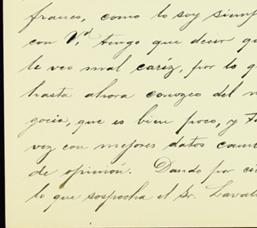 franco, como lo soy siemp
con Vd. tengo que decir qu
le veo mal cariz, por lo q
hasta ahora conozco del n
gocio, que es bien poco, y t
vez con mejores datos cam
de opinión. Dando por ci
lo que sospecha el Sr. Laval